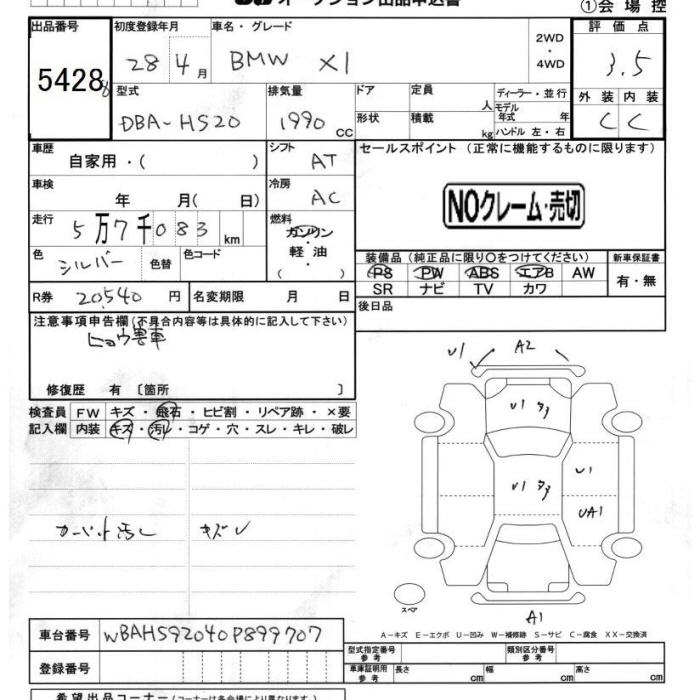 オークション出品申込書
①会場控
出品番号 初度登録年月 車名・グレード 評価点
5428 28 4月 BMW X1 2WD・4WD 3.5
外装 内装
C C
型式 排気量 ドア 定員 ディーラー・並行
人 モデル年式 年
DBA-HS20 1990 CC 形状 積載 kg ハンドル 左・右
車歴 シフト セールスポイント (正常に機能するものに限ります)
自家用・( ) AT
車検 冷房
年 月( 日) AC
NOクレーム・売切
走行 燃料
5万7千083 km ガソリン
軽油
・( )
色 色替 色コード
シルバー
装備品(純正品に限り○をつけてください) 新車保証書
PS PW ABS エアB AW 有・無
SR ナビ TV カワ
R券 20,540円 名変期限 月 日
後日品
注意事項申告欄(不具合内容等は具体的に記入して下さい)
ヒョウ害車
修復歴 有 〔箇所 〕
検査員 FW キズ・飛石・ヒビ割・リペア跡・×要
記入欄 内装 キズ・汚レ・コゲ・穴・スレ・キレ・破レ
U1 A2
U1
U1
U1
UA1
カーペット汚レ
スペア
A1
A-キズ E-エクボ U-凹み W-補修跡 S-サビ C-腐食 XX-交換済
車台番号 WBAHS92040P899707
型式指定番号 参考 類別区分番号 参考
登録番号
車庫証明用 参考 長さ cm 幅 cm 高さ cm
希望出品コーナー